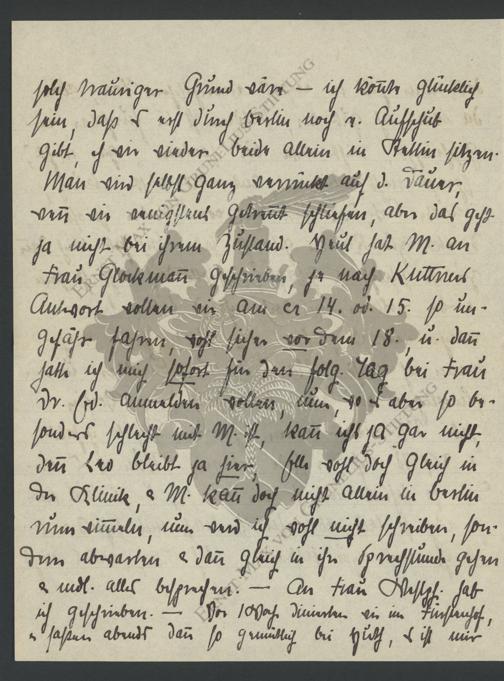 solch trauriger Grund wäre — ich könnte glücklich
sein, daß es erst durch Berlin noch e. Aufschub
gibt, eh wir wieder beide allein in Stettin sitzen.
Man wird selbst ganz verrückt auf d. Dauer,
weñ wir wenigstens getrennt schliefen, aber das geht
ja nicht bei ihrem Zustand. Heut hat M. an
Frau Glockmañ geschrieben, je nach Kuttners
Antwort wollen wir am ca 14. od. 15. so un-
gefähr fahren, wohl sicher vor dem 18. u. dañ
hatte ich mich sofort für den folg. Tag bei Frau
Dr. anmelden wollen, nun, wo es aber so be-
sonders schlecht mit M. ist, kañ ichs ja gar nicht,
deñ Leo bleibt ja hier, wohl doch gleich in
der Klinik, & M. kañ doch nicht allein in Berlin
rum wimmeln, nun werd ich wohl nicht schreiben, son-
dern abwarten & dañ gleich in ihre Sprechstunde gehen
& mdl. alles besprechen. — An Frau hab
ich geschrieben. — Vor 1 Woche dinierten wir im Fürstenhof,
& saßen abends dañ so gemütlich bei Huth, es ist mir